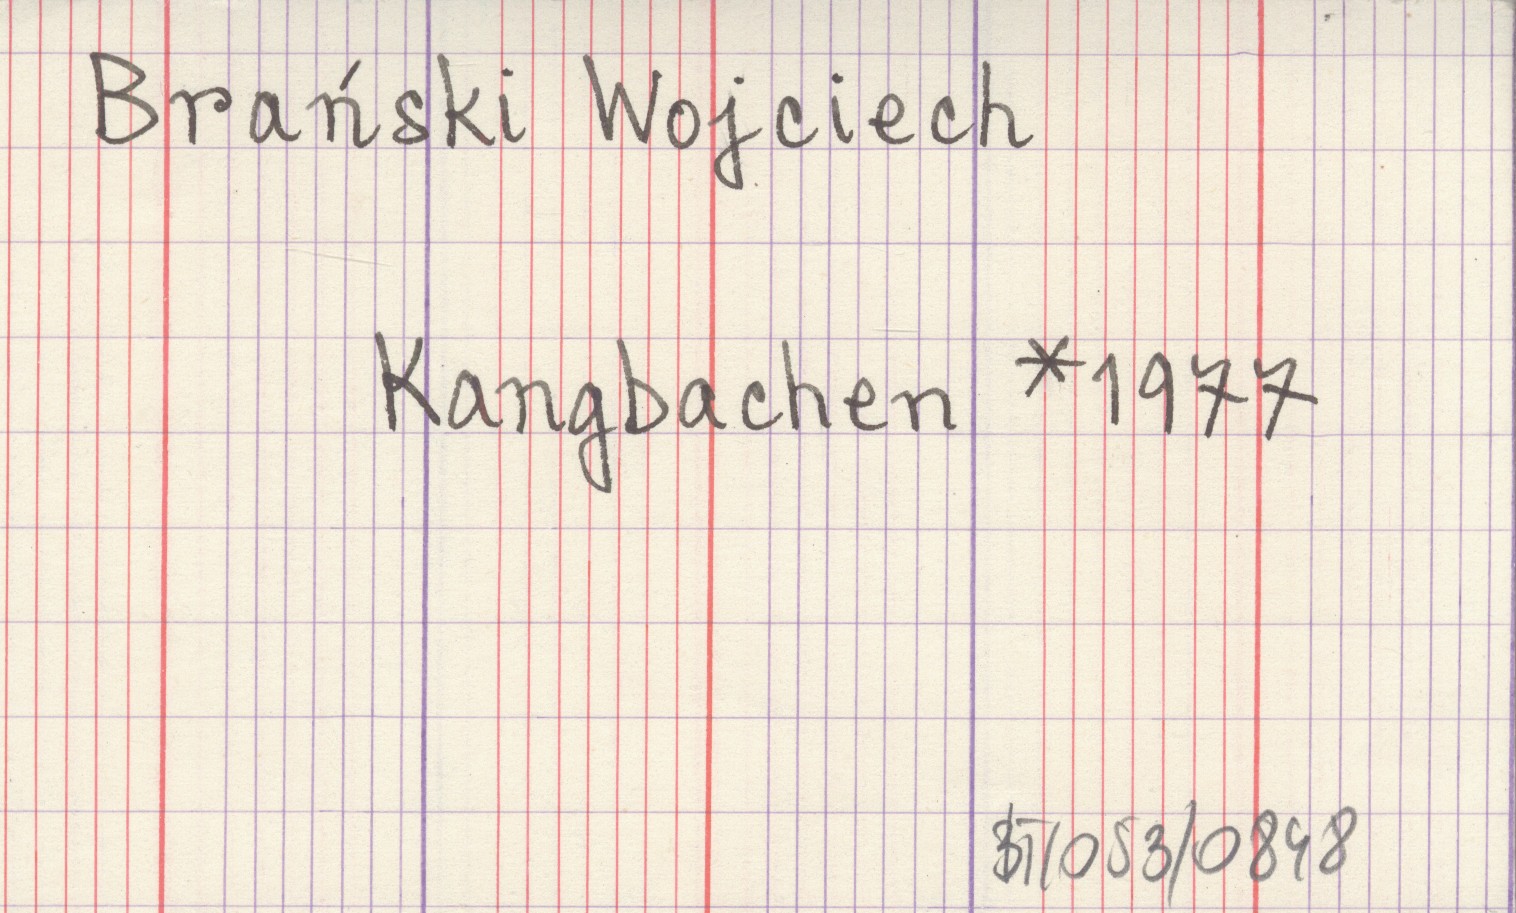 Brański Wojciech
Kangbachen *1977
BT/053/0848